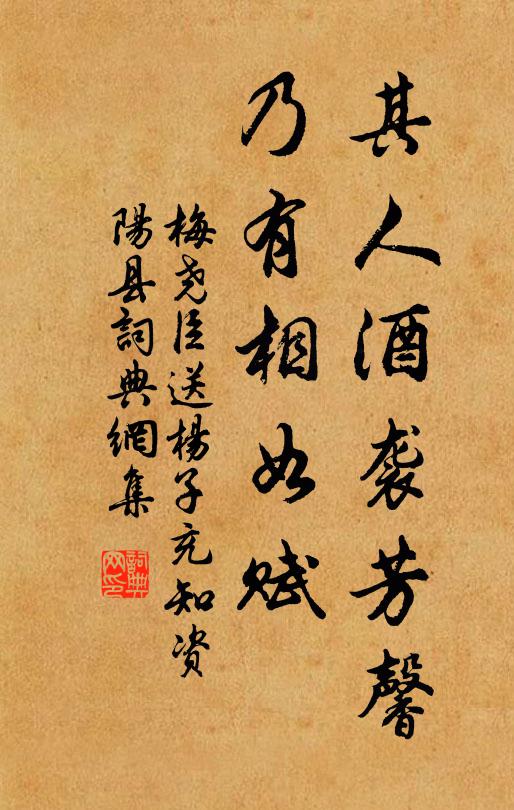 其人酒袭芳馨
乃有相如赋
梅尧臣送楊子充知资
陽县詞典網集
詞典
网印